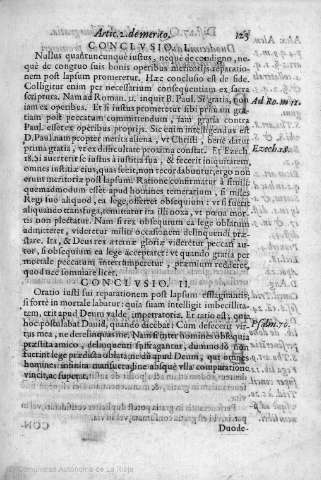 Artic. 2. de merito. 125
CONCLVSIO.
Nullus quantuncunque iustus, neque de condigno, ne-
que de congruo suis bonis operibus meritorijs reparatio-
nem post lapsum promeretur. Hæc conclusio est de fide.
Colligitur enim per necessariam consequentiam ex sacra
scriptura. Nam ad Roman. 11. inquit B. Paul. Si gratia, non
iam ex operibus. Et si iustus promeretur sibi primam gra-
tiam post peccatum committendum, iam gratia contra
Paul. esset ex operibus proprijs. Sic enim intelligendus est
D. Paulus non propter merita aliena, vt Christi, bene datur
prima gratia, vt ex difficultate proxima constat. Et Ezech.
18. Si auerterit se iustus à iustitia sua, & fecerit iniquitatem,
omnes iustitiæ eius, quas fecit, non recordabuntur, ergo non
erunt meritoriæ post lapsum. Ratione confirmatur à simili:
quemadmodum esset apud homines temerarium, si miles
Regi suo aliquod, ea lege, offerret obsequium: vt si fuerit
aliquando transgressus, remittatur ita illi noxa, vt pœna mor-
tis non plectatur. Nam si rex obsequium ea lege oblatum
admitteret, videretur militi occasionem delinquendi præ-
stare. Ita, & Deus rex æternæ gloriæ videretur peccati au-
tor, si obsequium ea lege acceptaret: vt quando gratia per
mortale peccatum interrumperetur, præmium redderet,
quod nec somniare licet.
CONCLVSIO. II.
Oratio iusti sui reparationem post lapsum efflagitantis,
si fortè in mortale labatur: quia suam intelligit imbecillita-
tem, erit apud Deum valde impetratoria. Et ratio est, quia
hoc postulabat Dauid, quando dicebat: Cum defecerit vir-
tus mea, ne derelinquas me. Nam sicut inter homines obsequia
præstita amico, delinquenti suffragantur, dummodo non
fuerint lege prædicta oblata: ne dum apud Deum, qui omnes
homines infinita mansuetudine absque vlla comparatione
vincit, ac superat.
Ad Ro. m 11.
Ezech. 18.
Psalm. 70.
Duode-
© Comunidad Autónoma de La Rioja